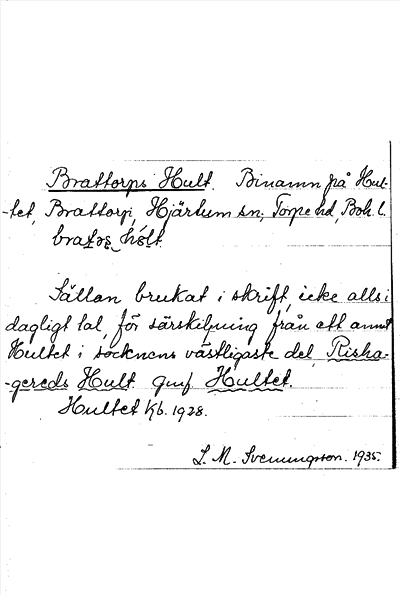 Brattorps Hult. Binamn på Hul-
-tet, Brattorp, Hjärtum sn; Torpe hd, Boh. l.
Sällan brukat i skrift, icke alls i
dagligt tal, för särskiljning från ett annat
Hultet i socknens västligaste del, Riska-
-gereds Hult. Jmf. Hultet.
Hultet Kb. 1928.
S. M. Svenungsson. 1935.